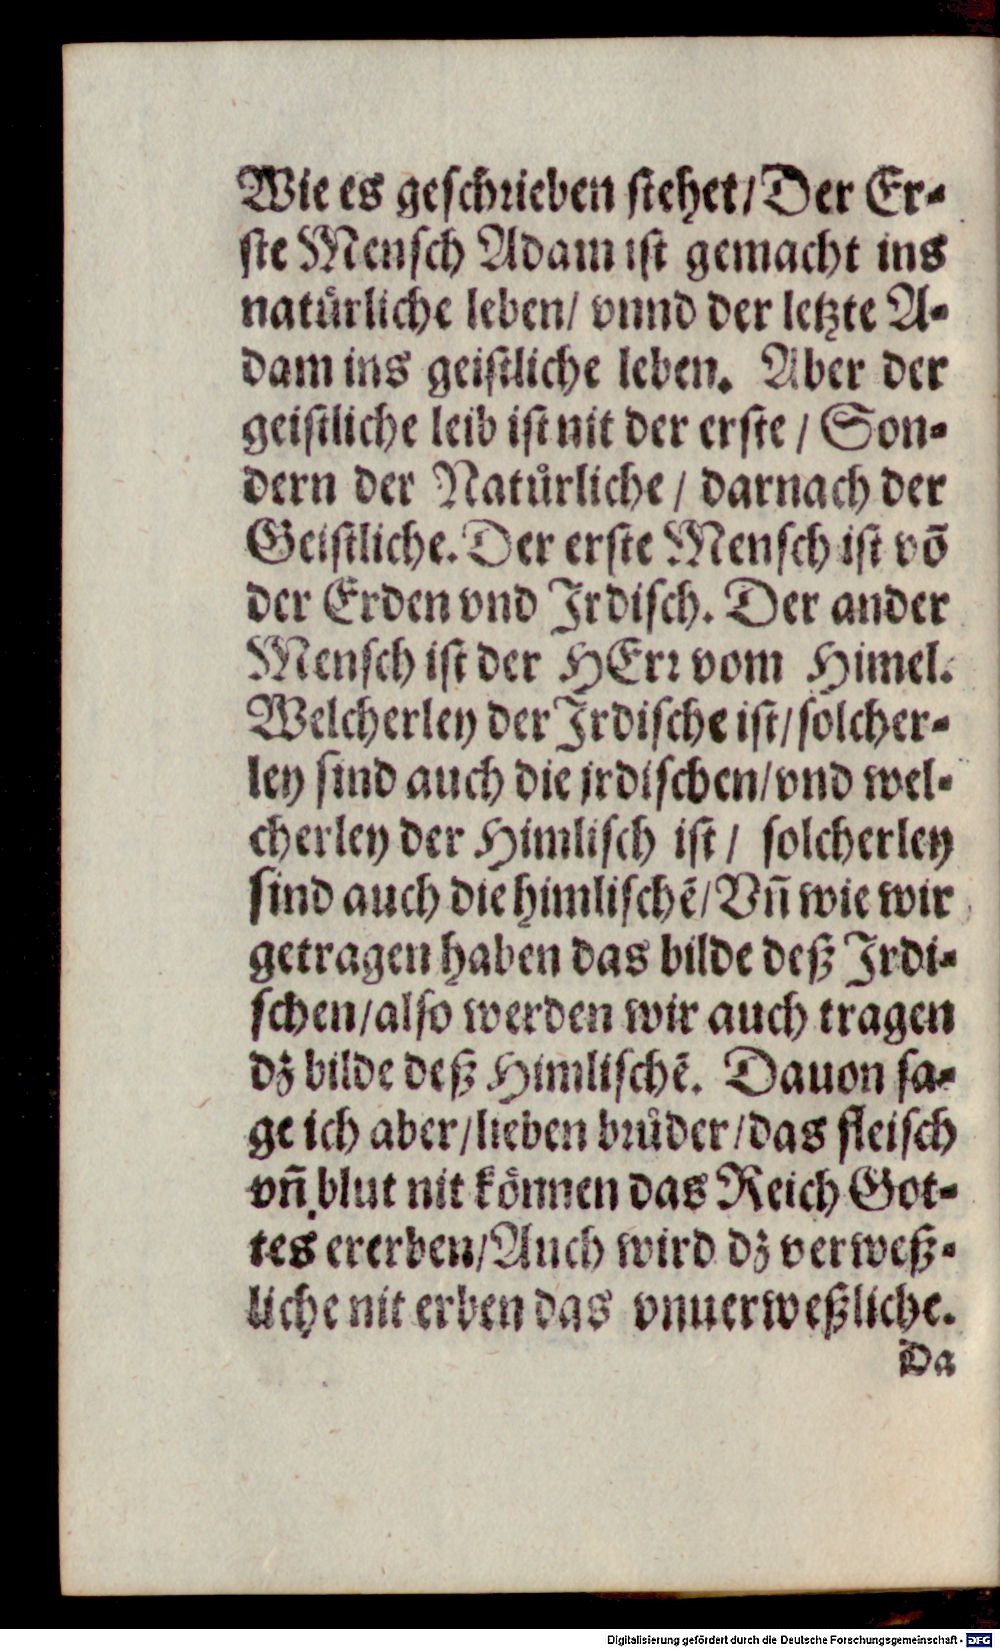 Wie es geſchrieben ſtehet / Der Er-
ſte Menſch Adam iſt gemacht ins
natuͤrliche leben / vnnd der letzte A-
dam ins geiſtliche leben. Aber der
geiſtliche leib iſt nit der erſte / Son-
dern der Natuͤrliche / darnach der
Geiſtliche. Der erſte Menſch iſt võ
der Erden vnd Irdiſch. Der ander
Menſch iſt der HErꝛ vom Himel.
Welcherley der Irdiſche iſt / ſolcher-
ley ſind auch die irdiſchen / vnd wel-
cherley der Himliſch iſt / ſolcherley
ſind auch die himliſchẽ / Vñ wie wir
getragen haben das bilde deß Irdi-
ſchen / alſo werden wir auch tragen
dz bilde deß Himliſchẽ. Dauon ſa-
ge ich aber / lieben bꝛuͤder / das fleiſch
vñ blut nit koͤnnen das Reich Got-
tes ererben / Auch wird dz verweß-
liche nit erben das vnuerweßliche.
Da
Digitalisierung gefördert durch die Deutsche Forschungsgemeinschaft - DFG